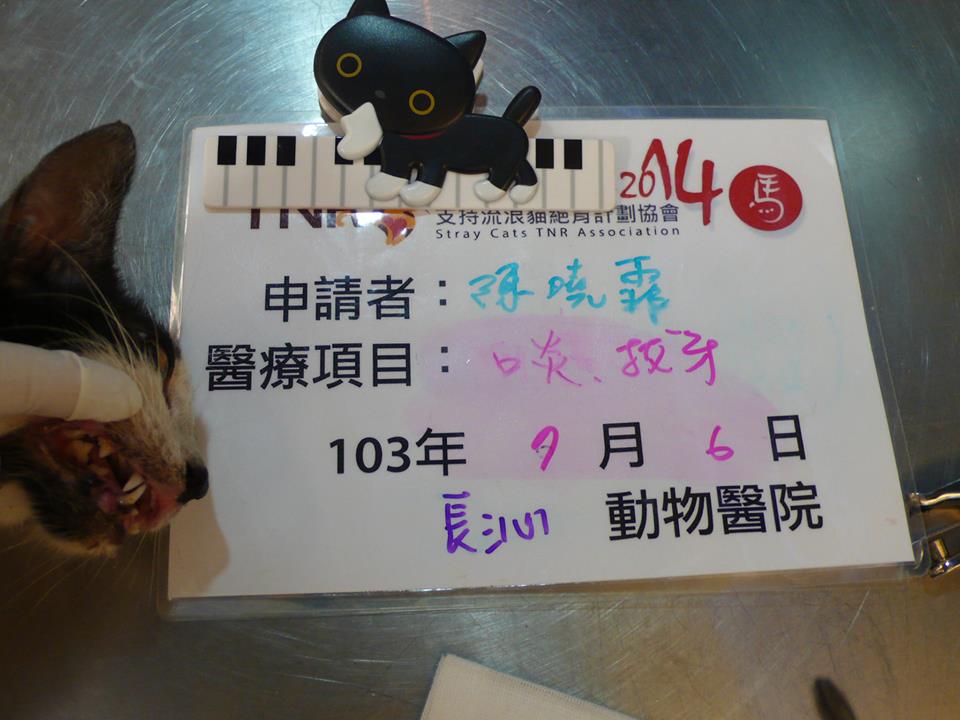 2014 馬
TNR 支持流浪貓絕育計劃協會
Stray Cats TNR Association
申請者：孫曉霏
醫療項目：口炎、拔牙
103年 9 月 6 日
長沁 動物醫院